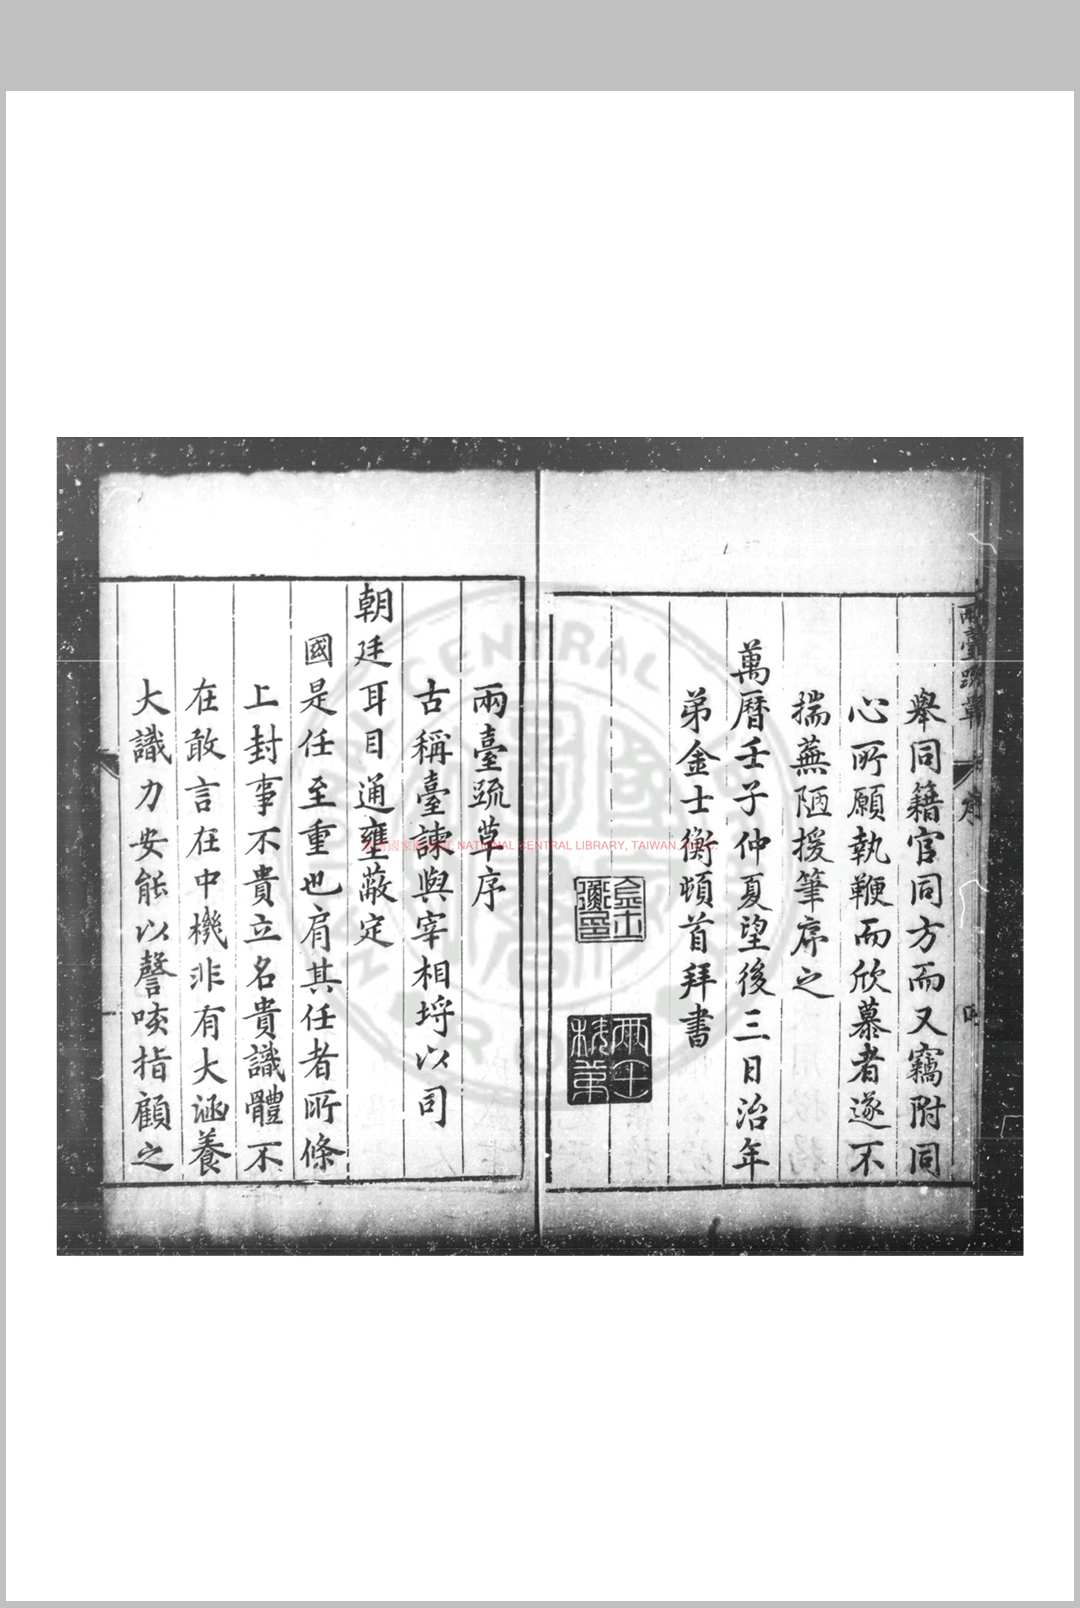 兩臺疏草 序
舉同籍官同方而又竊附同
心所願執鞭而欣慕者遂不
揣蕪陋援筆序之
萬曆壬子仲夏望後三日治年
弟金士衡頓首拜書
兩臺疏草序
古稱臺諫與宰相埒以司
朝廷耳目通壅蔽定
國是任至重也肩其任者所條
上封事不貴立名貴識體不
在敢言在中機非有大涵養
大識力安能以謦咳指顧之
NATIONAL CENTRAL LIBRARY, TAIWAN